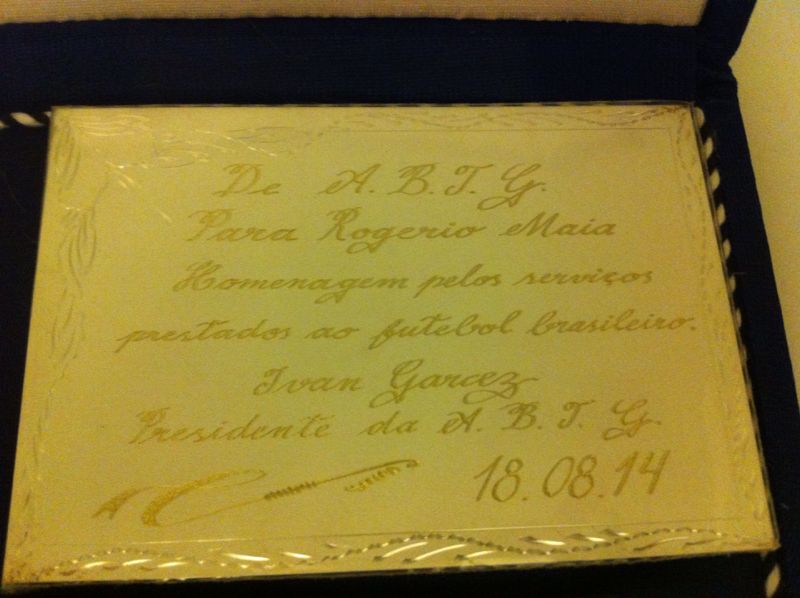 De A. B. T. G.
Para Rogerio Maia
Homenagem pelos serviços
prestados ao futebol brasileiro.
Ivan Garcez
Presidente da A. B. T. G.
18.08.14